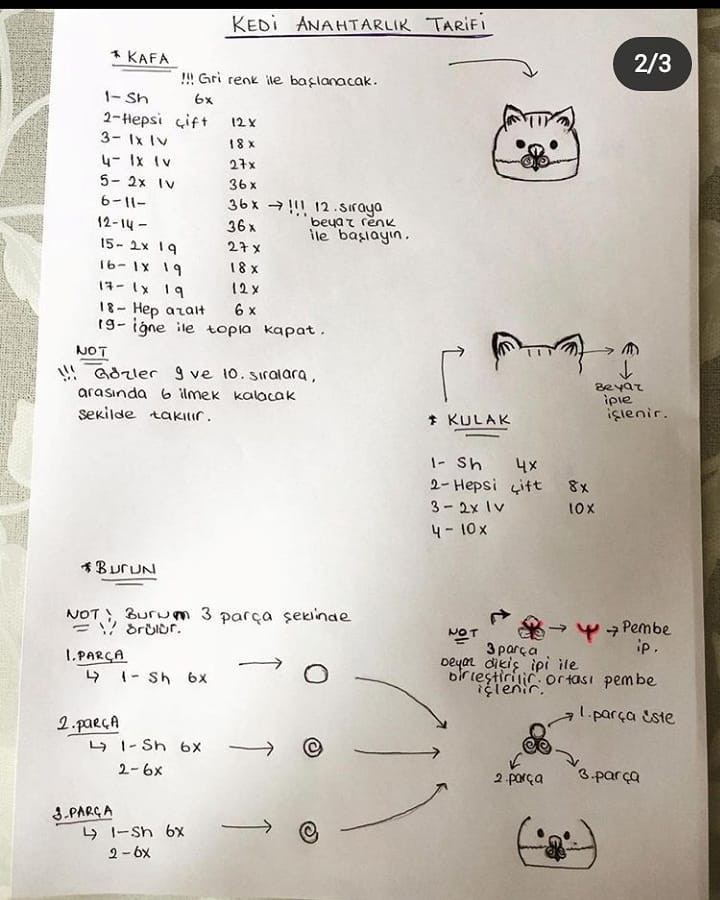 KEDİ ANAHTARLIK TARİFİ
2/3
* KAFA
!!! Gri renk ile başlanacak.
1- Sh 6x
2- Hepsi çift 12x
3- 1x 1v 18x
4- 1x 1v 27x
5- 2x 1v 36x
6-11- 36x → !!! 12. sıraya
beyaz renk
ile başlayın.
12-14- 36x
15- 2x 1q 27x
16- 1x 1q 18x
17- 1x 1q 12x
18- Hep azalt 6x
19- iğne ile topla kapat.
NOT
!!! Gözler 9 ve 10. sıralara,
arasında 6 ilmek kalacak
şekilde takılır.
Beyaz
iple
işlenir.
* KULAK
1- Sh 4x
2- Hepsi çift 8x
3- 2x 1v 10x
4- 10x
* BURUN
NOT !! Burum 3 parça şeklinde
örülür.
1. PARÇA
↳ 1- Sh 6x
2. PARÇA
↳ 1-Sh 6x
2-6x
3. PARÇA
↳ 1-Sh 6x
2-6x
→ Pembe
ip.
NOT
3 parça
beyaz dikiş ipi ile
birleştirilir. ortası pembe
işlenir.
1. parça üste
2. parça 3. parça